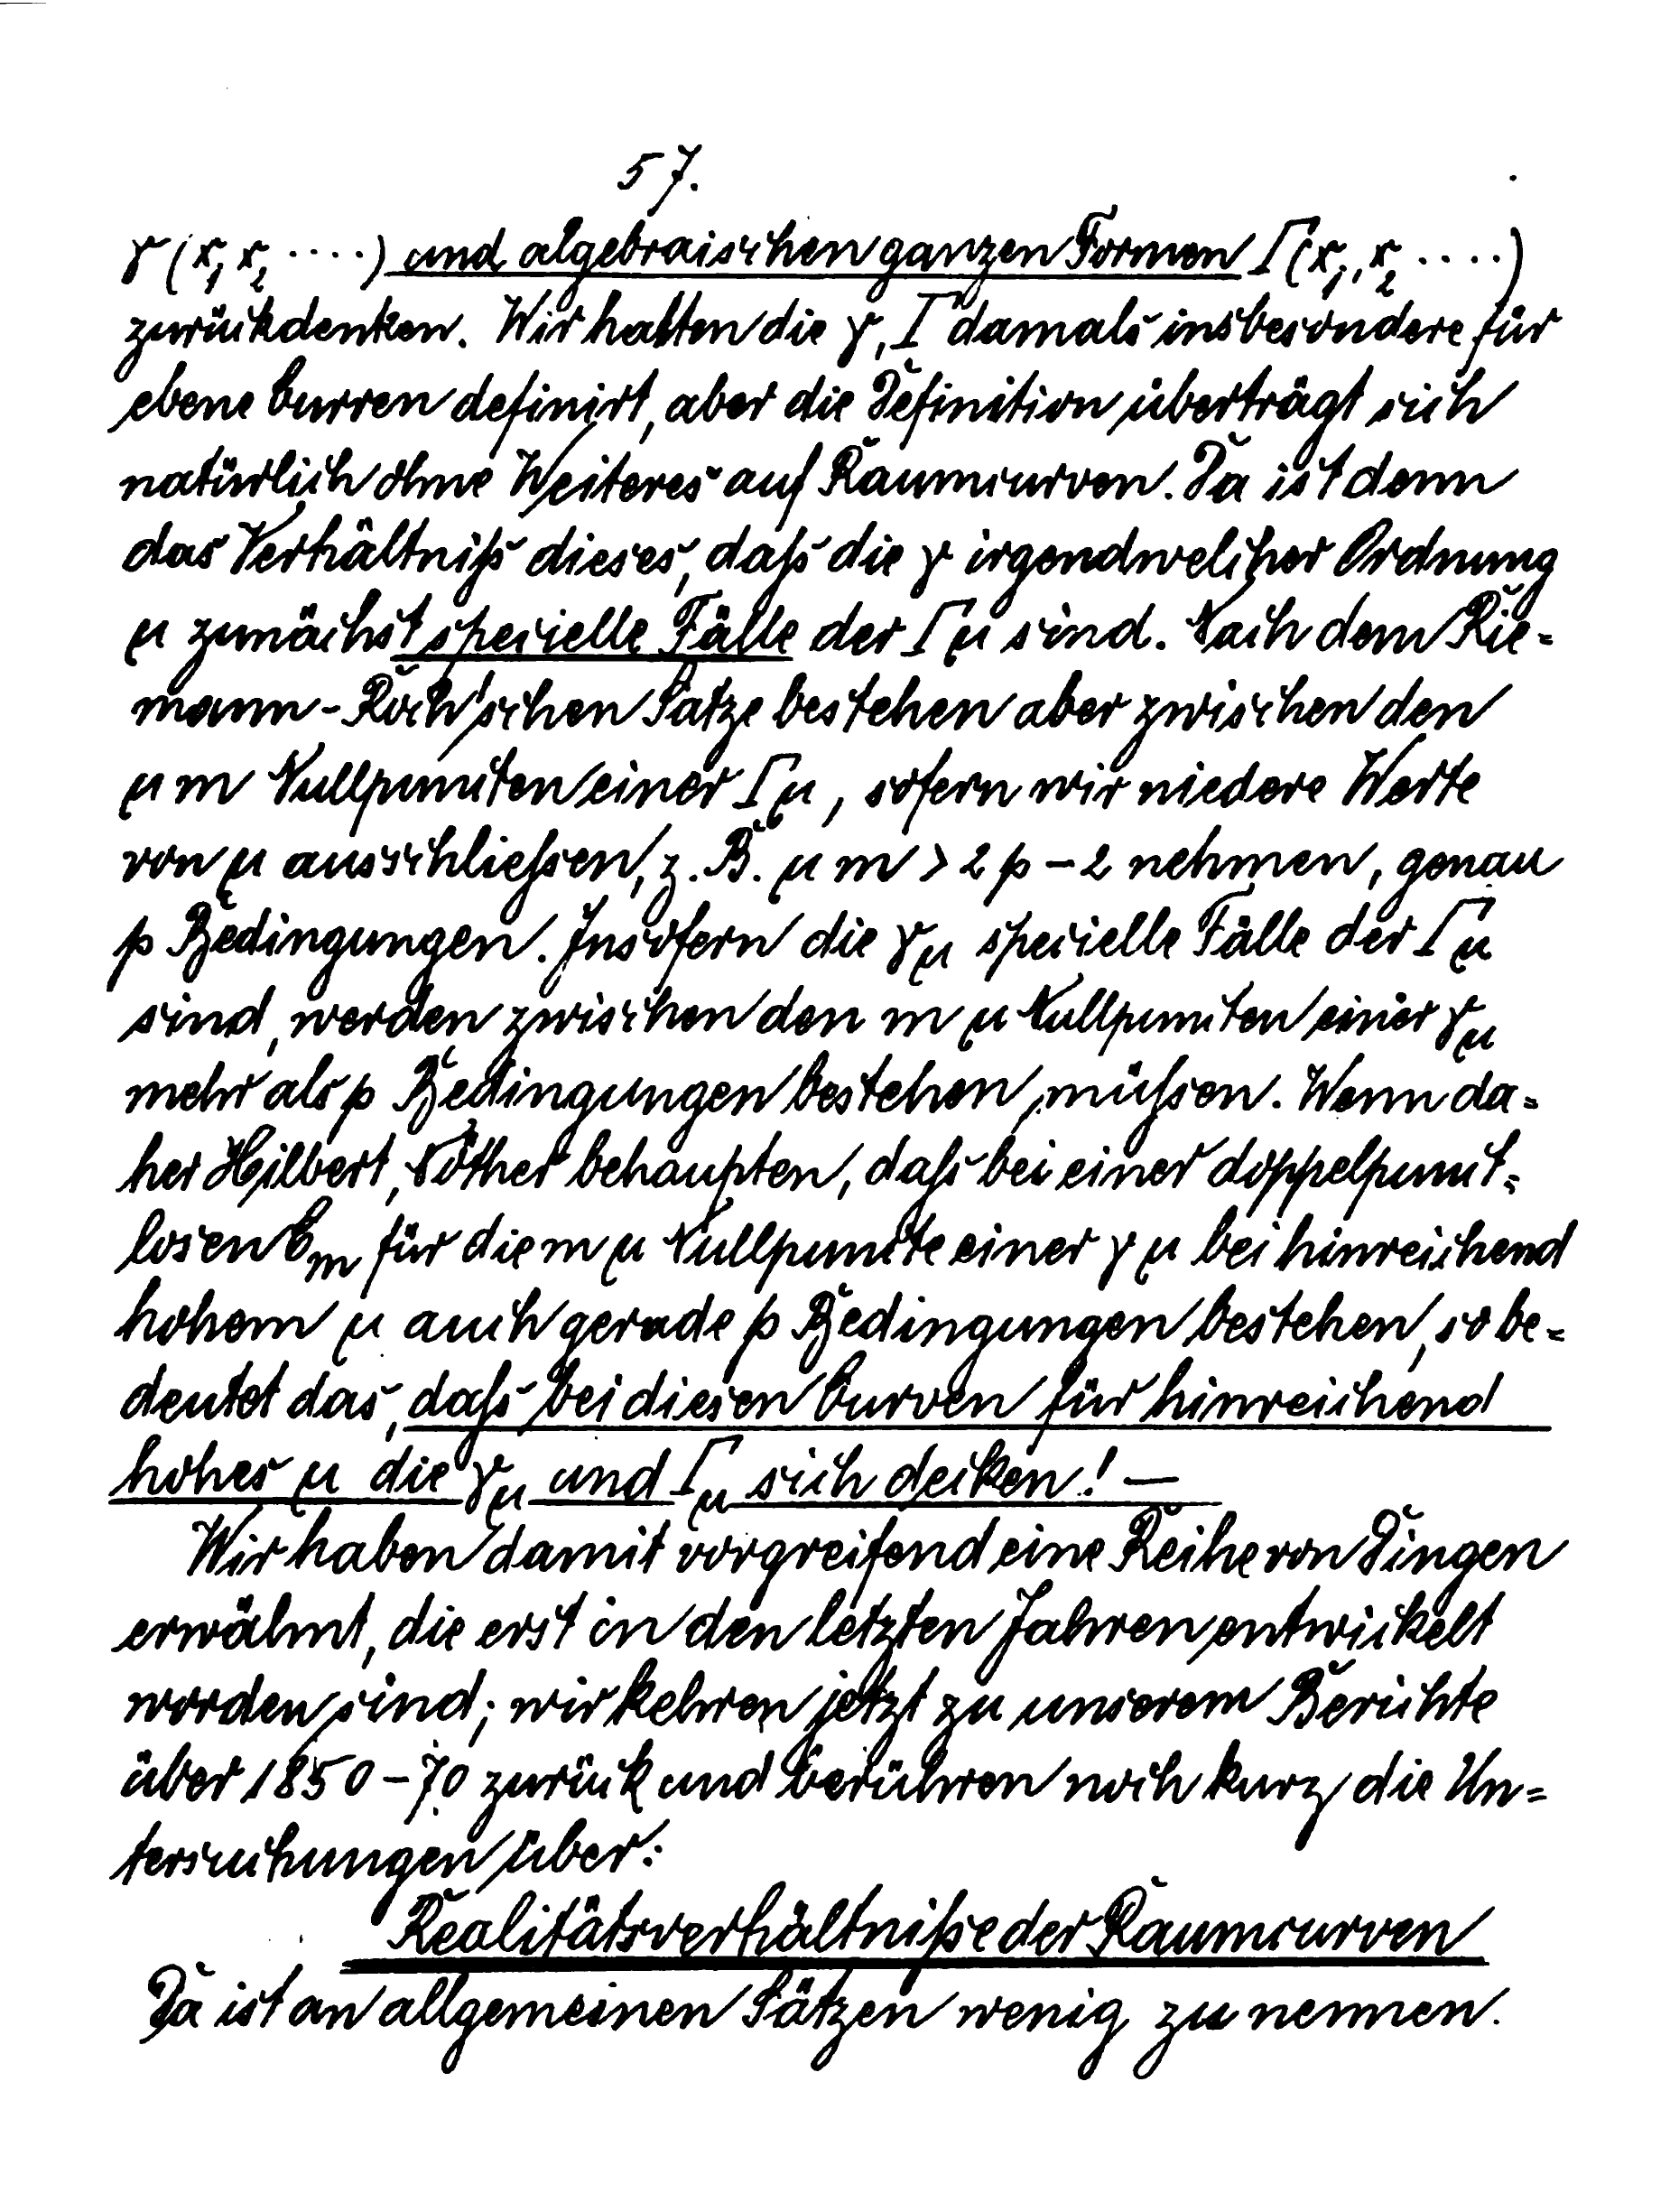 57.
γ(x₁, x₂ ....) und algebraischen ganzen Formen Γ(x₁, x₂ ....)
zurückdenken. Wir hatten die γ, Γ damals insbesondere für
ebene Curven definirt, aber die Definition überträgt sich
natürlich ohne Weiteres auf Raumcurven. Da ist denn
das Verhältniß dieses, daß die γ irgendwelcher Ordnung
μ zunächst specielle Fälle der Γμ sind. Nach dem Rie=
mann-Roch'schen Satze bestehen aber zwischen den
μm Nullpuncten einer Γμ, sofern wir niedere Werte
von μ ausschließen, z. B. μm > 2p - 2 nehmen, genau
p Bedingungen. Insofern die γμ specielle Fälle der Γμ
sind, werden zwischen den mμ Nullpuncten einer γμ
mehr als p Bedingungen bestehen müßen. Wenn da=
her Hilbert, Nöther behaupten, daß bei einer doppelpunct=
losen Cm für die mμ Nullpuncte einer γμ bei hinreichend
hohem μ auch gerade p Bedingungen bestehen, so be=
deutet das, daß bei diesen Curven für hinreichend
hohes μ die γμ und Γμ sich decken! —
Wir haben damit vorgreifend eine Reihe von Dingen
erwähnt, die erst in den letzten Jahren entwickelt
worden sind; wir kehren jetzt zu unserem Berichte
über 1850-70 zurück und berühren noch kurz die Un=
tersuchungen über:
Realitätsverhältniße der Raumcurven
Da ist an allgemeinen Sätzen wenig zu nennen.